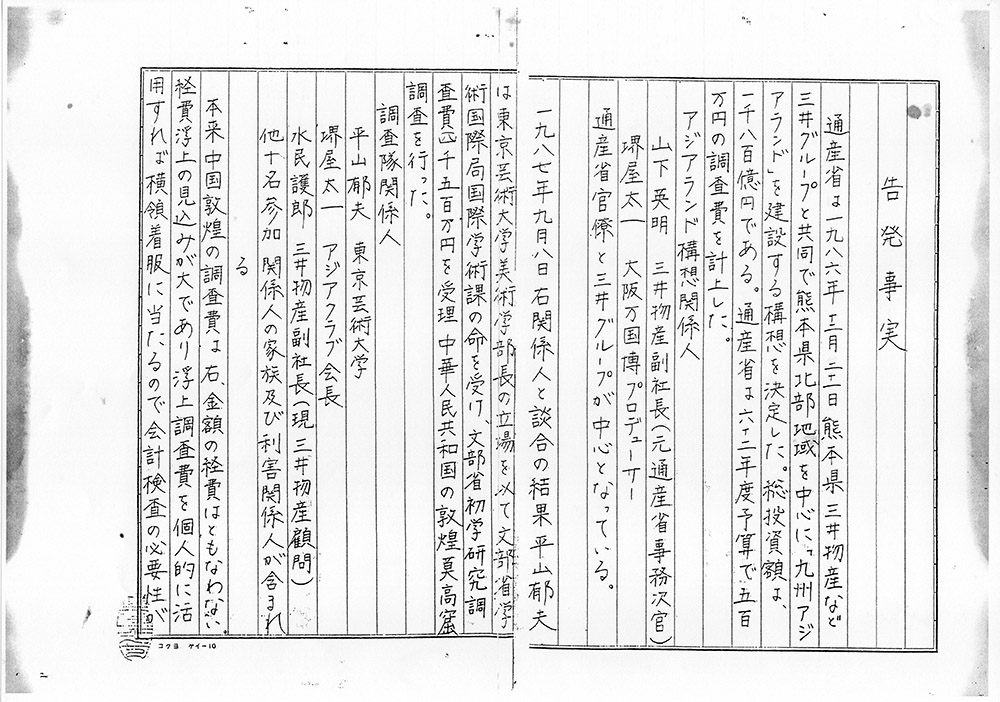 告発事実
通産省は一九八六年十二月二十一日熊本県三井物産など
三井グループと共同で熊本県北部地域を中心に「九州アジ
アランド」を建設する構想を決定した。総投資額は、
一千八百億円である。通産省は六十二年度予算で五百
万円の調査費を計上した。
アジアランド構想関係人
山下英明 三井物産副社長(元通産省事務次官)
堺屋太一 大阪万国博プロデューサー
通産省官僚と三井グループが中心となっている。
一九八七年九月八日右関係人と談合の結果平山郁夫
は東京芸術大学美術学部長の立場を以て文部省学
術国際局国際学術課の命を受け、文部省初学研究調
査費四千五百万円を受理中華人民共和国の敦煌莫高窟
調査を行った。
調査隊関係人
平山郁夫 東京芸術大学
堺屋太一 アジアクラブ会長
水民護郎 三井物産副社長(現三井物産顧問)
他十名参加 関係人の家族及び利害関係人が含まれ
る
本来中国敦煌の調査費は右、金額の経費はともなわない
経費浮上の見込みが大であり浮上調査費を個人的に活
用すれば横領着服に当たるので会計検査の必要性が
コクヨ ケイー10
二